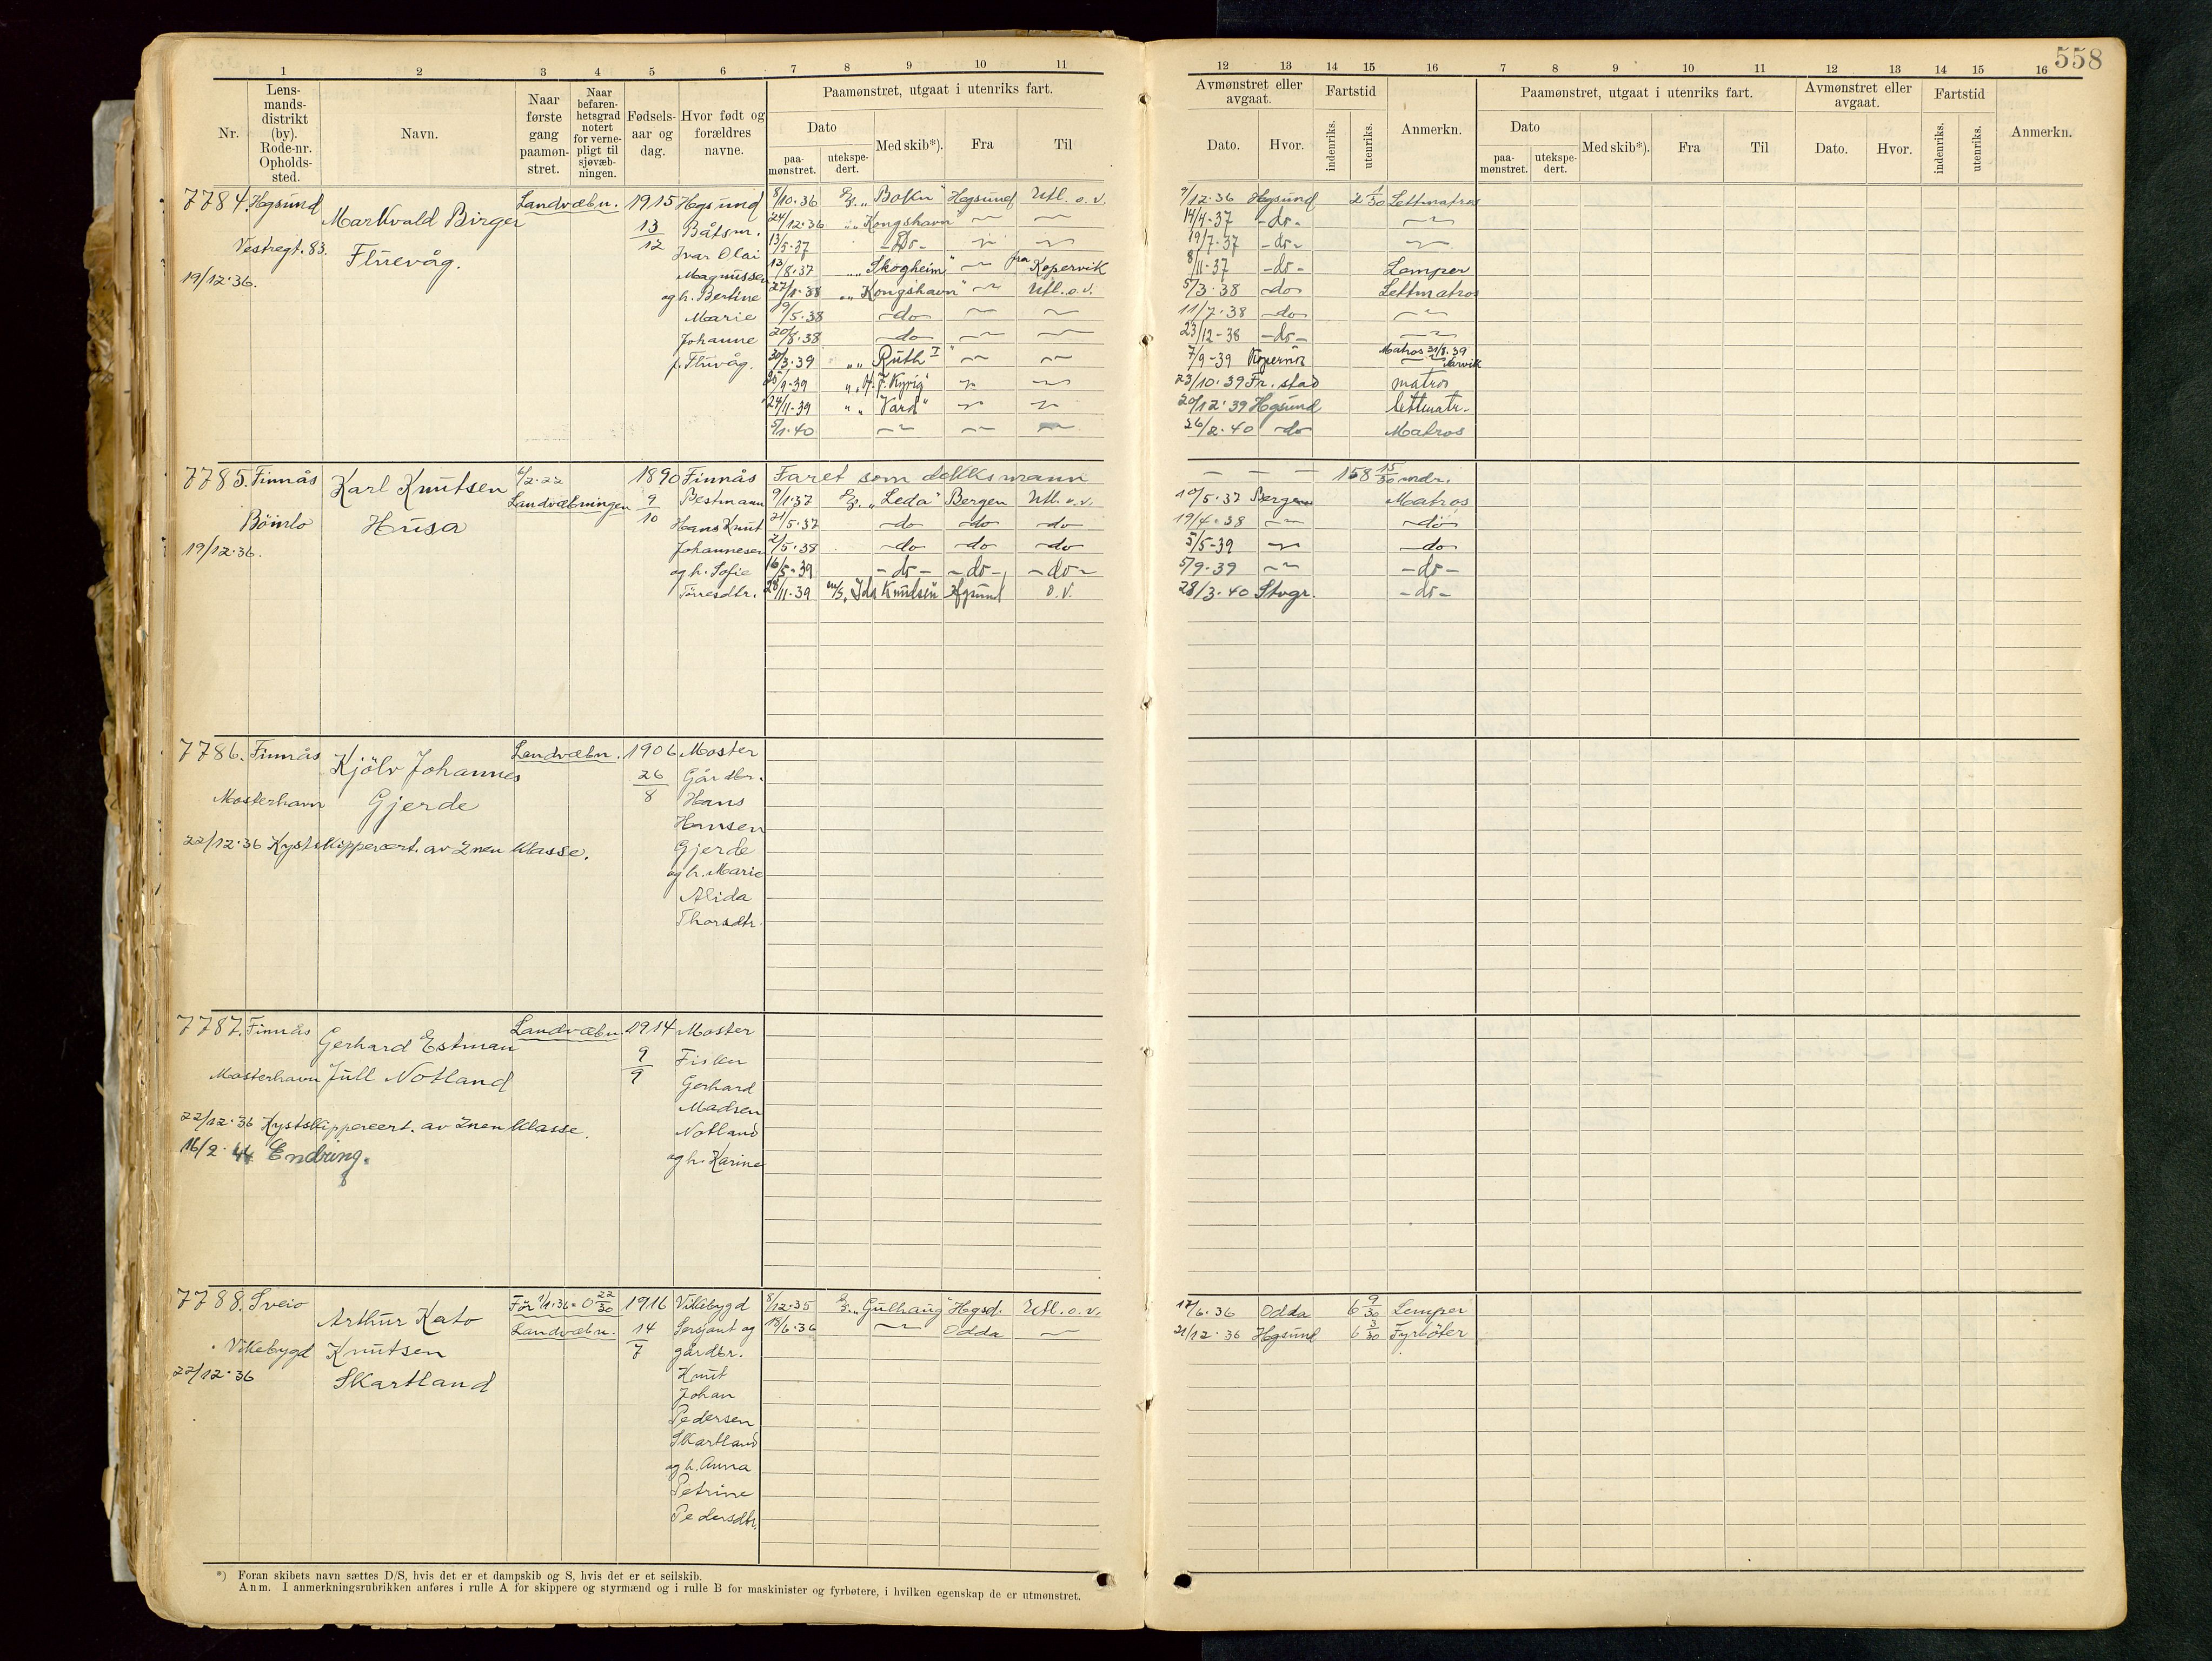 558
1 2 3 4 5 6 7 8 9 10 11 12 13 14 15 16 7 8 9 10 11 12 13 14 15 16
Nr.
Lens-
mands-
distrikt
(by).
Rode-nr.
Opholds-
sted.
Navn.
Naar
første
gang
paamøn-
stret.
Naar
befaren-
hetsgrad
notert
for verne-
pligt til
sjøvæb-
ningen.
Fødsels-
aar og
dag.
Hvor født og
forældres
navne.
Paamønstret, utgaat i utenriks fart.
Dato
paa-
mønstret.
utekspe-
dert.
Med skib*).
Fra
Til
Avmønstret eller
avgaat.
Dato.
Hvor.
Fartstid
indenriks.
utenriks.
Anmerkn.
Paamønstret, utgaat i utenriks fart.
Dato
paa-
mønstret.
utekspe-
dert.
Med skib*).
Fra
Til
Avmønstret eller
avgaat.
Dato.
Hvor.
Fartstid
indenriks.
utenriks.
Anmerkn.
7784. Hgsund
Vestregt. 83.
19/12.36.
Markvald Birger
Fluevåg.
Landvæbn.
1915
13
12
Hgsund
Båtsm.
Ivar Olai
Magnussen
og h. Bertine
Marie
Johanne
f. Fluevåg.
8/10.36 "Bokn" Hgsund Utl. o.v. 9/12.36 Hgsund 2 1/30 Lettmatros
24/12.36 "Kongshavn" — — 14/4-37 -do- —
13/5-37 -Do- — — 19/7-37 -do- —
13/8-37 "Skogheim" — fra Kopervik 8/11-37 -do- Lemper
27/1-38 "Kongshavn" — Utl. o.v. 5/3-38 -do- Lettmatros
9/5-38 -do- — — 11/7-38 -do- —
20/8-38 -do- — — 23/12-38 -do- —
30/3-39 "Ruth I" — — 7/9-39 Matros 31/8.39
Narvik
"H. F. Kyrig" — — 23/10.39 Fr. stad matros
24/11-39 "Vard" — — 20/12.39 Hgsund lettmatr.
5/1-40 — — — 26/2.40 -do- Matros
7785. Finnås
Bömlo
19/12.36.
Karl Knutsen
Husa
6/2-22
Landvæbningen
1890
9
10
Finnås
Bestmann
Hans Knut
Johannesen
og h. Sofie
Törresdtr.
Faret som dekksmann — — — 158 15/30 mdr.
9/1.37 "Leda" Bergen Utl. o.v. 10/5.37 Bergen Matros
21/5.37 -do- -do- -do- 19/4-38 — -do-
2/5-38 -do- -do- -do- 5/5-39 — -do-
16/5-39 -do- -do- -do- 5/9-39 — -do-
28/11-39 m/s. Ida Knudsen Hgsund o.v. 28/3.40 Stvgr. -do-
7786. Finnås
Mosterhavn
Kjölv Johannes
Gjerde
22/12.36 Kystskippercert. av 2nen Klasse.
Landvæbn.
1906
26
8
Moster
Gårdbr.
Hans
Hansen
Gjerde
og h. Marie
Alida
Thorsdtr.
7787. Finnås
Mosterhavn
Gerhard Estman
Jull Notland
22/12.36 Kystskippercert. av 2nen Klasse.
16/2.44 Endring.
Landvæbn.
1914
9
9
Moster
Fisker
Gerhard
Madsen
Notland
og h. Karine
7788. Sveio
Vikebygd
22/12.36
Arthur Kato
Knutsen
Skartland
Før 1/1.36 = 0 22/30
Landvæbn.
1916
14
7
Vikebygd
Sersjant og
gårdbr.
Knut
Johan
Pedersen
Skartland
og h. Anna
Petrine
Pedersdtr.
8/12.35 "Gulhaug" Hgsd. Utl. o.v. 17/6.36 Odda 6 9/30 Lemper
18/6.36 — Odda — 21/12.36 Hgsund 6 3/30 Fyrböter
*) Foran skibets navn sættes D/S, hvis det er et dampskib og S, hvis det er et seilskib.
Anm. I anmerkningsrubrikken anføres i rulle A for skippere og styrmænd og i rulle B for maskinister og fyrbøtere, i hvilken egenskap de er utmønstret.